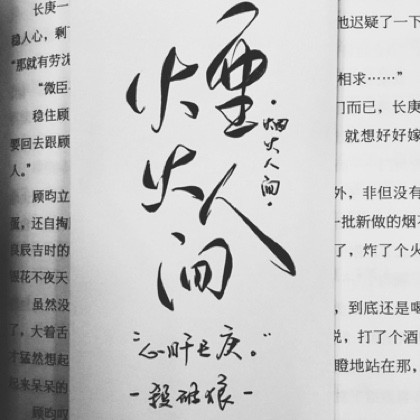 长庚一
稳人心，剩
“那就有劳沈
“微臣
稳住顾
要回去跟顾
人。”
顾昀立
蛋，还自掏
良辰吉时的
银花不夜天
虽然没
了，大着舌
才猛然想起
起来呆呆的
顾昀
煙
火人
间
·烟火人间·
“心肝长庚。”
-殺破狼-
他迟疑了一下
相求……”
门而已，长庚
就想好好嫁
外，非但没有
一批新做的烟
了，炸了个火
，到底还是喝
说，打了个酒
瞪地站在那，